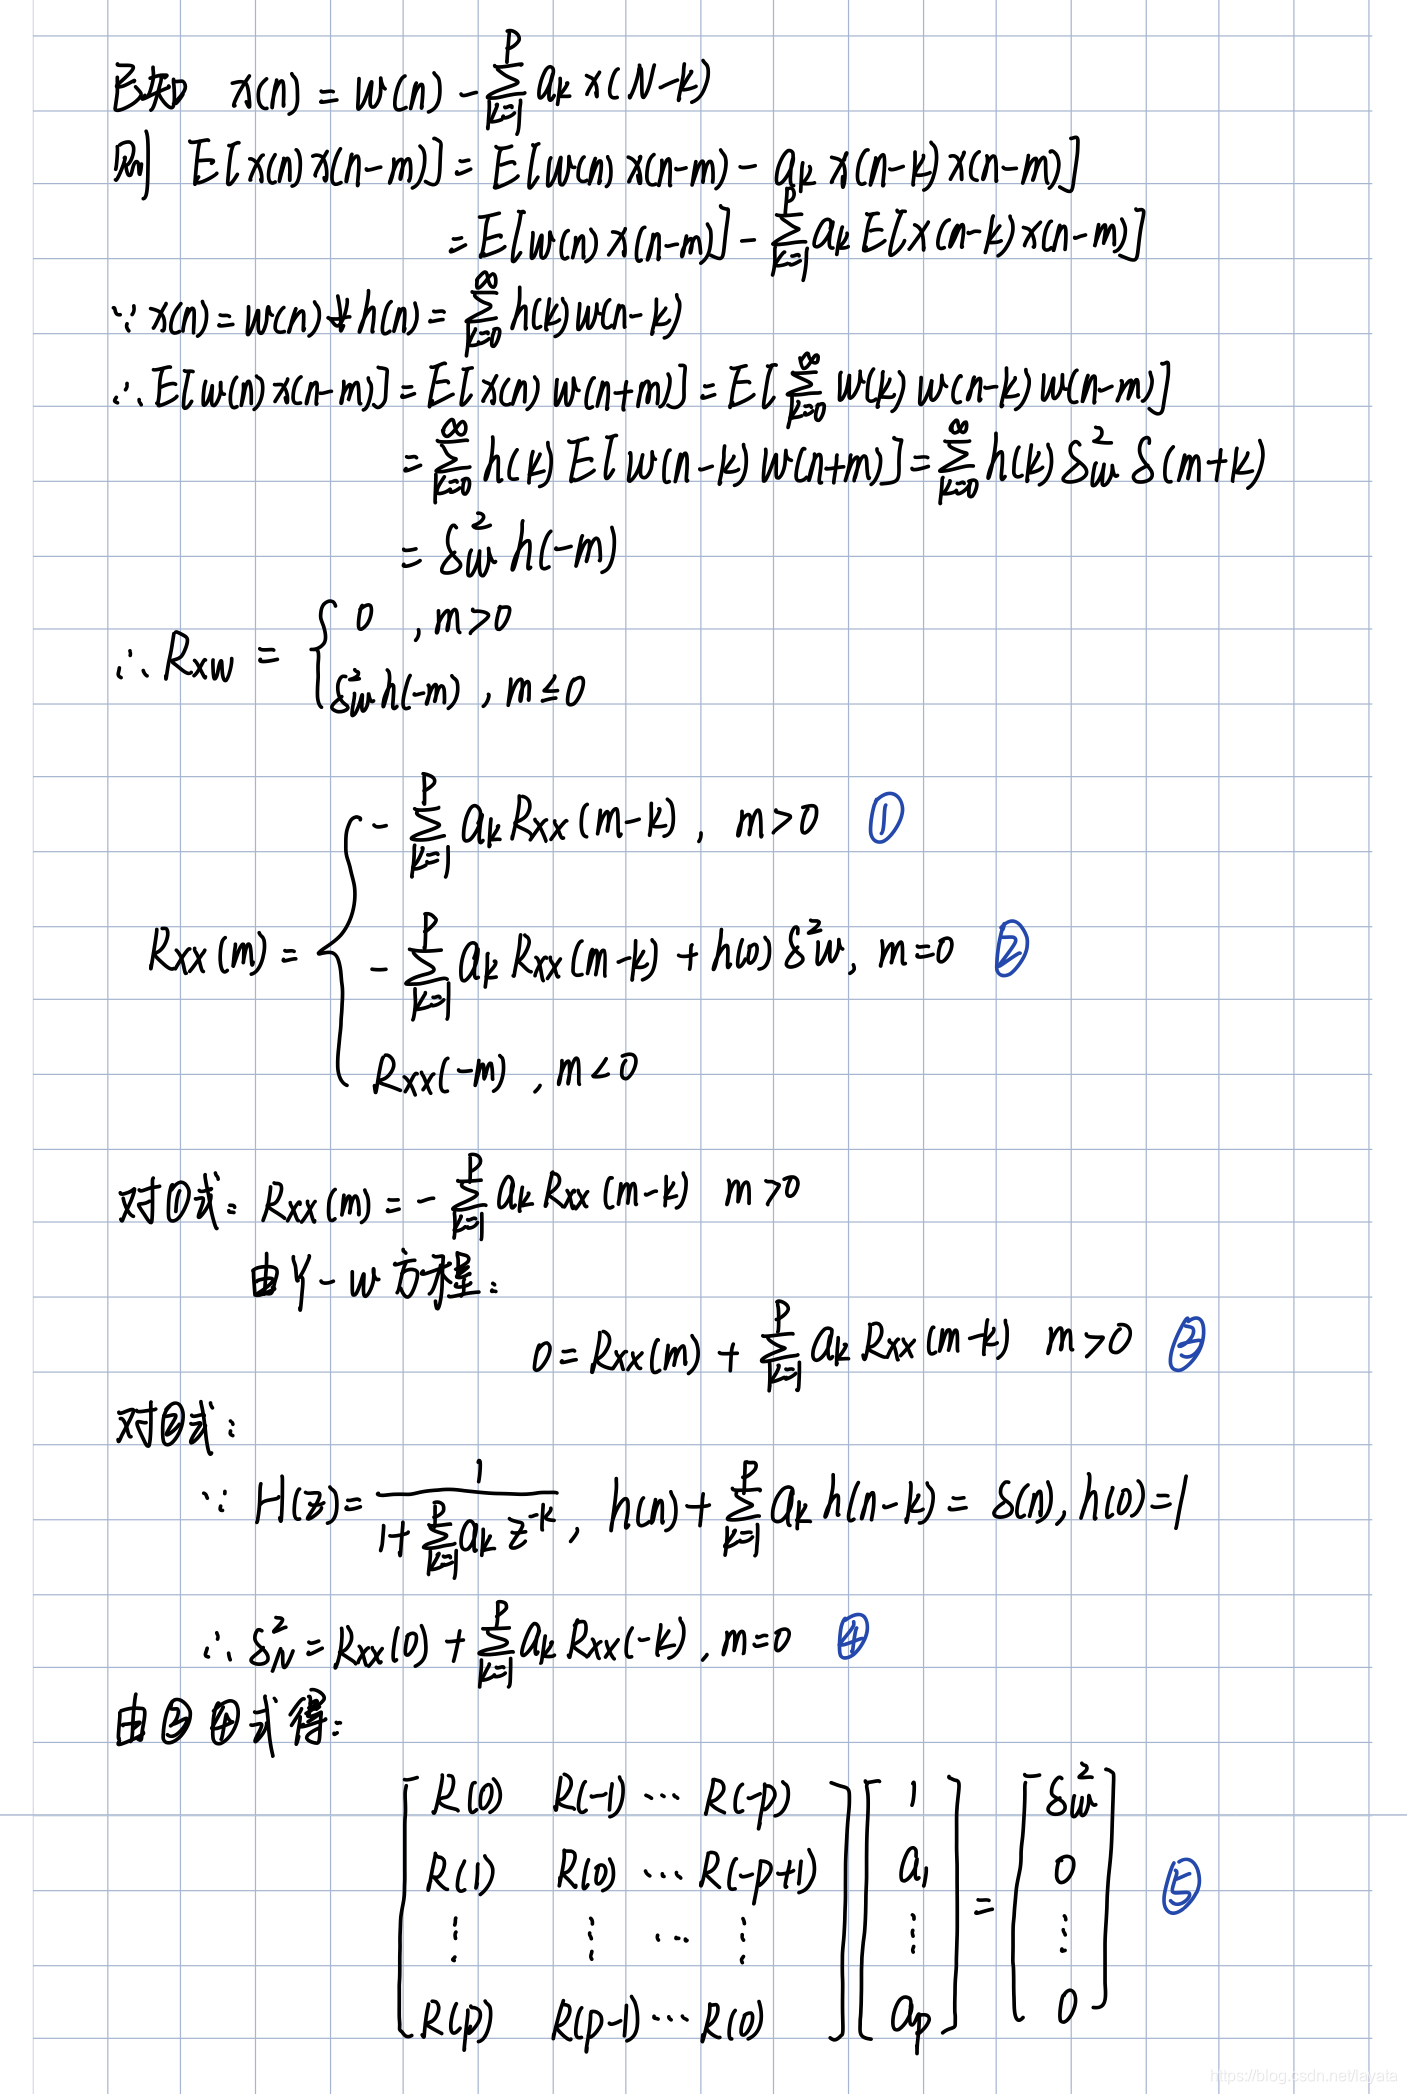 已知 x(n) = w(n) - ∑_{k=1}^{p} a_k x(N-k)
则 E[x(n)x(n-m)] = E[w(n)x(n-m) - a_k x(n-k)x(n-m)]
= E[w(n)x(n-m)] - ∑_{k=1}^{p} a_k E[x(n-k)x(n-m)]
∵ x(n) = w(n) * h(n) = ∑_{k=0}^{∞} h(k)w(n-k)
∴ E[w(n)x(n-m)] = E[x(n) w(n+m)] = E[∑_{k=0}^{∞} w(k) w(n-k) w(n-m)]
= ∑_{k=0}^{∞} h(k) E[w(n-k) w(n+m)] = ∑_{k=0}^{∞} h(k) δ_w^2 δ(m+k)
= δ_w^2 h(-m)
∴ R_{xw} = { 0 , m>0
δ_w^2 h(-m) , m≤0
R_{xx}(m) = { - ∑_{k=1}^{p} a_k R_{xx}(m-k), m>0 ①
- ∑_{k=1}^{p} a_k R_{xx}(m-k) + h(0) δ^2 w, m=0 ②
R_{xx}(-m) , m<0
对①式: R_{xx}(m) = - ∑_{k=1}^{p} a_k R_{xx}(m-k) m>0
由Y-w方程:
0 = R_{xx}(m) + ∑_{k=1}^{p} a_k R_{xx}(m-k) m>0 ③
对②式:
∵ H(z) = \frac{1}{1+∑_{k=1}^{p} a_k z^{-k}}, h(n) + ∑_{k=1}^{p} a_k h(n-k) = δ(n), h(0)=1
∴ δ_N^2 = R_{xx}(0) + ∑_{k=1}^{p} a_k R_{xx}(-k), m=0 ④
由③④式得:
[ R(0) R(-1) ⋯ R(-p) ] [ 1 ] = [ δ_w^2 ]
[ R(1) R(0) ⋯ R(-p+1) ] [ a_1 ] [ 0 ] ⑤
[ ⋮ ⋮ ⋯ ⋮ ] [ ⋮ ] [ ⋮ ]
[ R(p) R(p-1) ⋯ R(0) ] [ a_p ] [ 0 ]
https://blog.csdn.net/layata